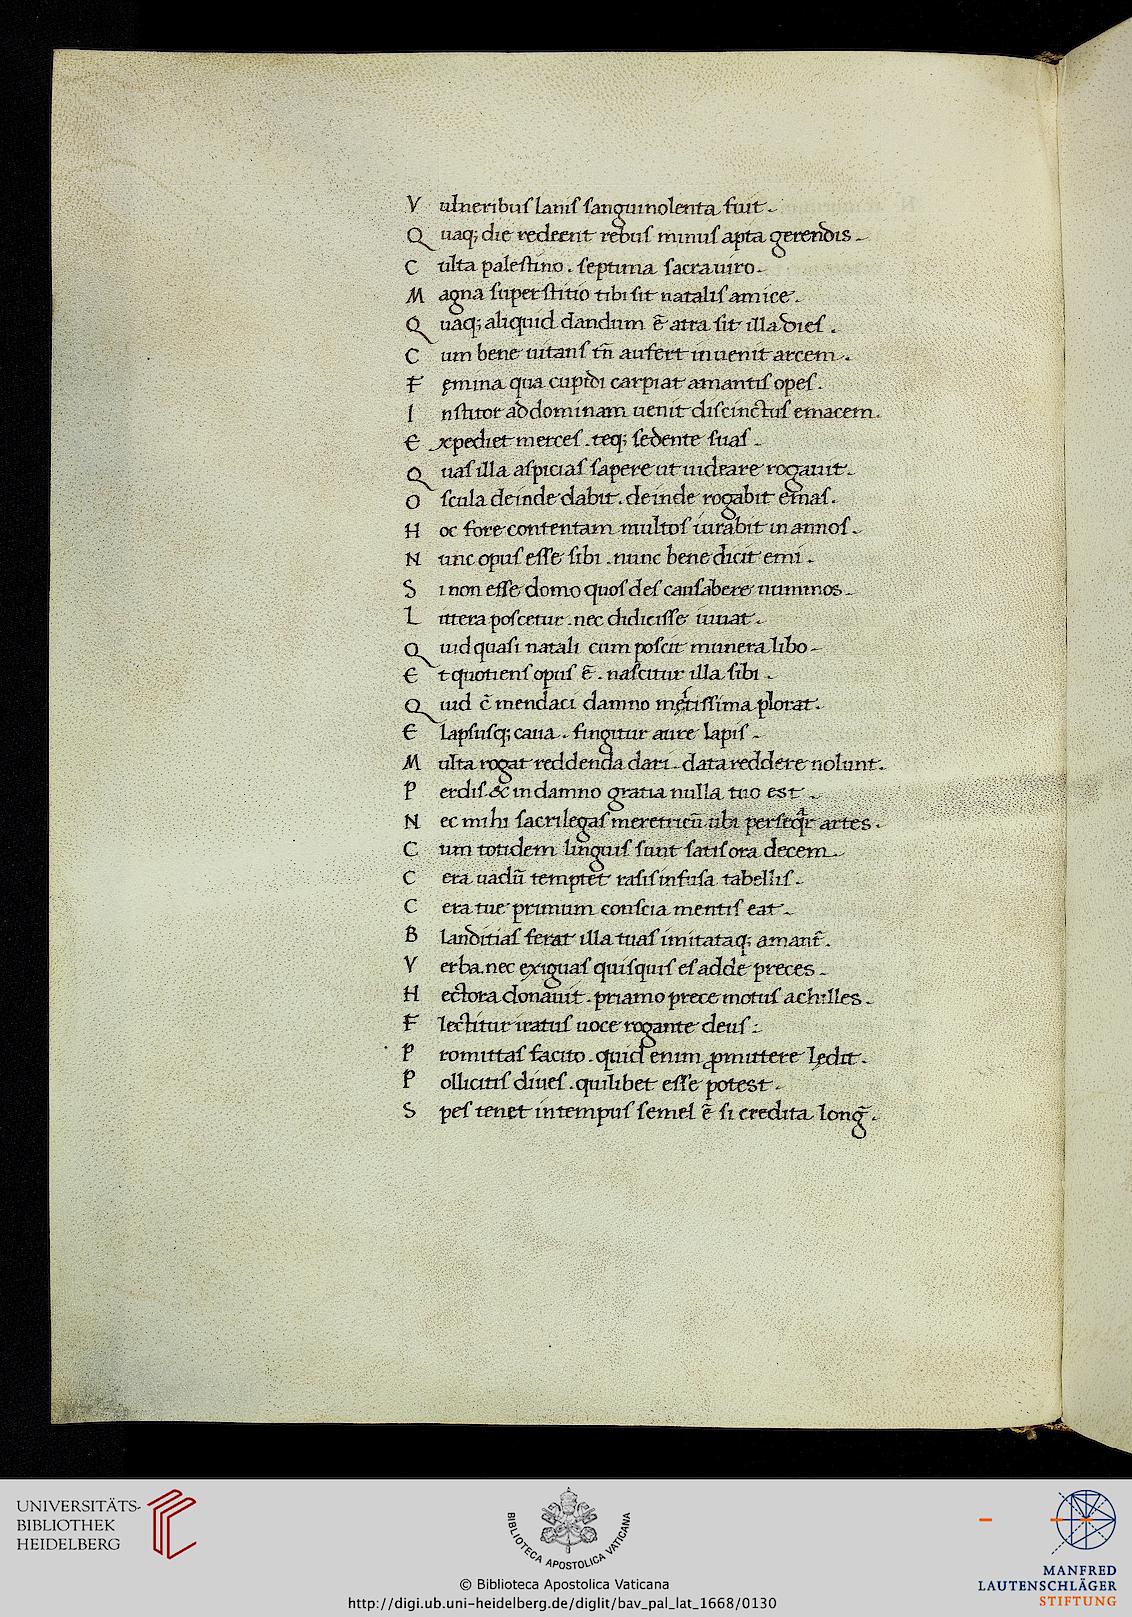 V ulneribus lanis sanguinolenta fuit.
Q uaq; die redeent rebus minus apta gerendis.
C ulta palestino. septima sacra uiro.
M agna superstitio tibi sit natalis amice.
Q uaq; aliquid dandum ē atra sit illa dies.
C um bene uitans tñ aufert inuenit artem.
F ęmina qua cupidi carpiat amantis opes.
I nstitor ad dominam uenit discinctus emacem.
E xpediet merces. teq; sedente suas.
Q uas illa aspicias sapere ut uideare rogauit.
O scula deinde dabit. deinde rogabit emas.
H oc fore contentam multos iurabit in annos.
N unc opus esse sibi. nunc bene dicit emi.
S i non esse domo quos des causabere nummos.
L ittera poscetur. nec didicisse iuuat.
Q uid quasi natali cum poscit munera libo.
E t quotiens opus ē. nascitur illa sibi.
Q uid c̄ mendaci damno mętissima plorat.
E lapsusq; caua. fingitur aure lapis.
M ulta rogat reddenda dari. data reddere nolunt.
P erdis. & in damno gratia nulla tuo est.
N ec mihi sacrilegas meretricū ubi perseqr artes.
C um totidem linguis sunt satis ora decem.
C era uadū temptet rasis infusa tabellis.
C era tue primum conscia mentis eat.
B landitias ferat illa tuas imitataq; amant̄.
V erba. nec exiguas quisquis es adde preces.
H ectora donauit. priamo prece motus achilles.
F lectitur iratus uoce rogante deus:
P romittas facito. quid enim ꝓmittere lędit.
P ollicitis diues. quilibet esse potest.
S pes tenet in tempus semel ē si credita lonḡ.
UNIVERSITÄTS-
BIBLIOTHEK
HEIDELBERG
BIBLIOTECA APOSTOLICA VATICANA
© Biblioteca Apostolica Vaticana
http://digi.ub.uni-heidelberg.de/diglit/bav_pal_lat_1668/0130
MANFRED
LAUTENSCHLÄGER
STIFTUNG